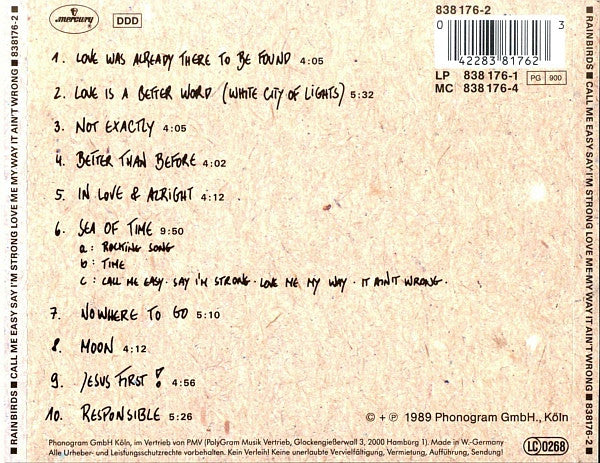 mercury
DDD
838 176-2
0
42283 81762
3
LP 838 176-1
MC 838 176-4
PG 900
1. LOVE WAS ALREADY THERE TO BE FOUND 4:05
2. LOVE IS A BETTER WORD (WHITE CITY OF LIGHTS) 5:32
3. NOT EXACTLY 4:05
4. BETTER THAN BEFORE 4:02
5. IN LOVE & ALRIGHT 4:12
6. SEA OF TIME 9:50
a: ROCKING SONG
b: TIME
c: CALL ME EASY · SAY I'M STRONG · LOVE ME MY WAY · IT AIN'T WRONG ·
7. NOWHERE TO GO 5:10
8. MOON 4:12
9. JESUS FIRST! 4:56
10. RESPONSIBLE 5:26
© + ℗ 1989 Phonogram GmbH., Köln
Phonogram GmbH Köln, im Vertrieb von PMV (PolyGram Musik Vertrieb, Glockengießerwall 3, 2000 Hamburg 1). Made in W.-Germany
Alle Urheber- und Leistungsschutzrechte vorbehalten. Kein Verleih! Keine unerlaubte Vervielfältigung, Vermietung, Aufführung, Sendung!
LC 0268
RAINBIRDS ■ CALL ME EASY SAY I'M STRONG LOVE ME MY WAY IT AIN'T WRONG ■ 838 176-2
RAINBIRDS ■ CALL ME EASY SAY I'M STRONG LOVE ME MY WAY IT AIN'T WRONG ■ 838 176-2